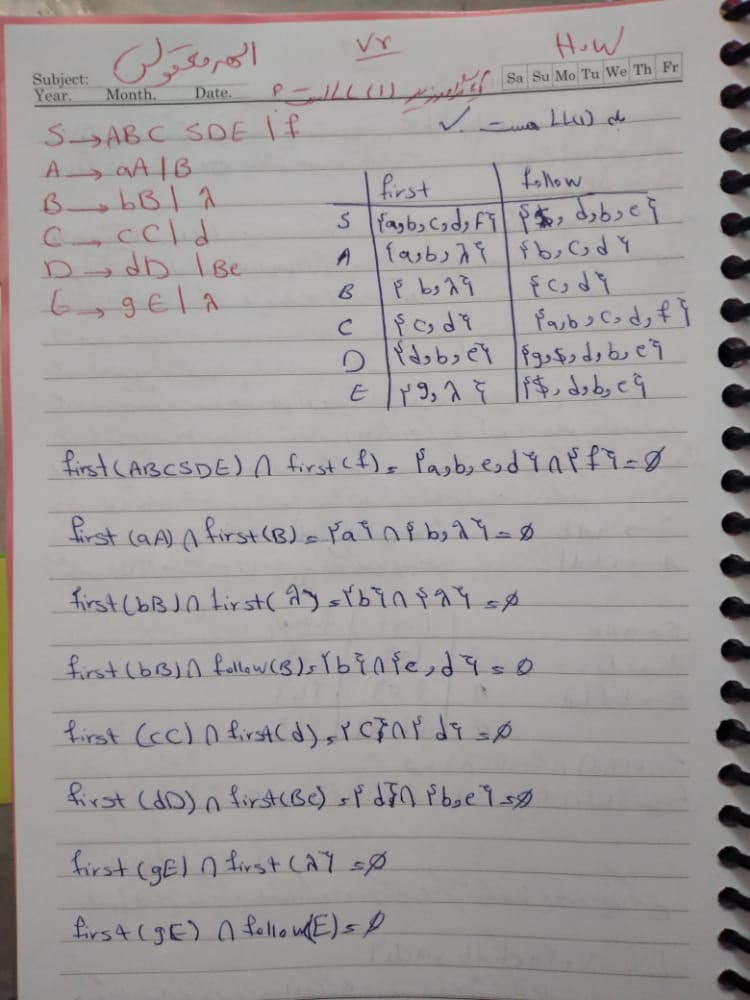 ۷۳
H.W
Subject:
Sa Su Mo Tu We Th Fr
Year. Month. Date.
S → ABC SDE | f
بله LL(1) هست ✓
A → aA | B
B → bB | λ
C → cC | d
D → dD | Be
E → gE | λ
first follow
S {a,b,c,d,f} {$, d,b,e}
A {a,b,λ} {b,c,d}
B {b,λ} {c,d}
C {c,d} {a,b,c,d,f}
D {d,b,e} {g,$,d,b,e}
E {g,λ} {$,d,b,e}
first(ABCSDE) ∩ first(f) = {a,b,c,d} ∩ {f} = ∅
first(aA) ∩ first(B) = {a} ∩ {b,λ} = ∅
first(bB) ∩ first(λ) = {b} ∩ {λ} = ∅
first(bB) ∩ follow(B) = {b} ∩ {c,d} = ∅
first(cC) ∩ first(d) = {c} ∩ {d} = ∅
first(dD) ∩ first(Be) = {d} ∩ {b,e} = ∅
first(gE) ∩ first(λ) = ∅
first(gE) ∩ follow(E) = ∅